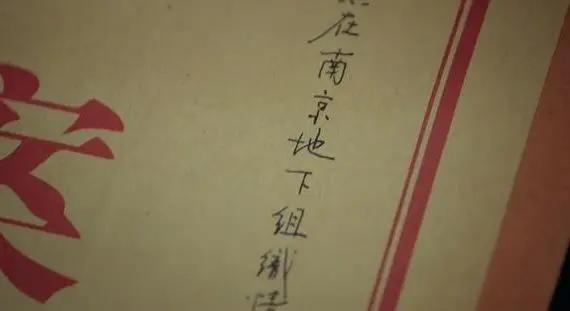 在南京地下组织